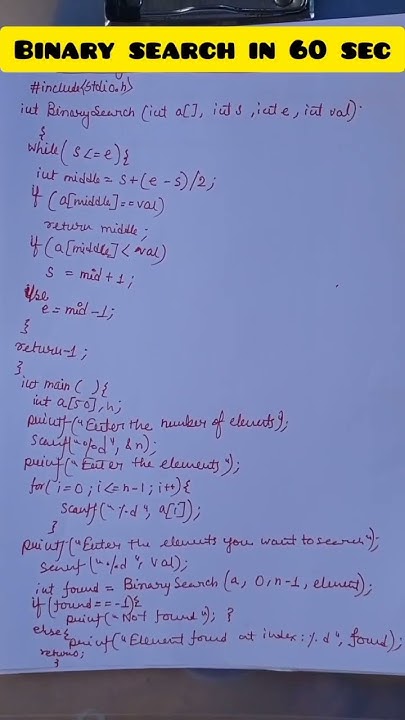 BINARY SEARCH IN 60 SEC
#include<stdio.h>
int BinarySearch (int a[], int s, int e, int val)
{
while( s<=e){
int middle = s+(e-s)/2;
if (a[middle]==val)
return middle;
if (a[middle]<val)
s = mid+1;
else
e = mid-1;
}
return-1;
}
int main( ){
int a[50],n;
printf("Enter the number of elements);
scanf("%d", &n);
printf("Enter the elements");
for( i=0; i<=n-1; i++){
scanf("%d", a[i]);
}
printf("Enter the elements you want to search");
scanf("%d", val);
int found = BinarySearch (a, 0, n-1, element);
if (found==-1){
printf("Not found"); }
else{
printf("Element found at index:%d", found);
return0;
}